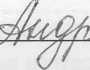 Андр